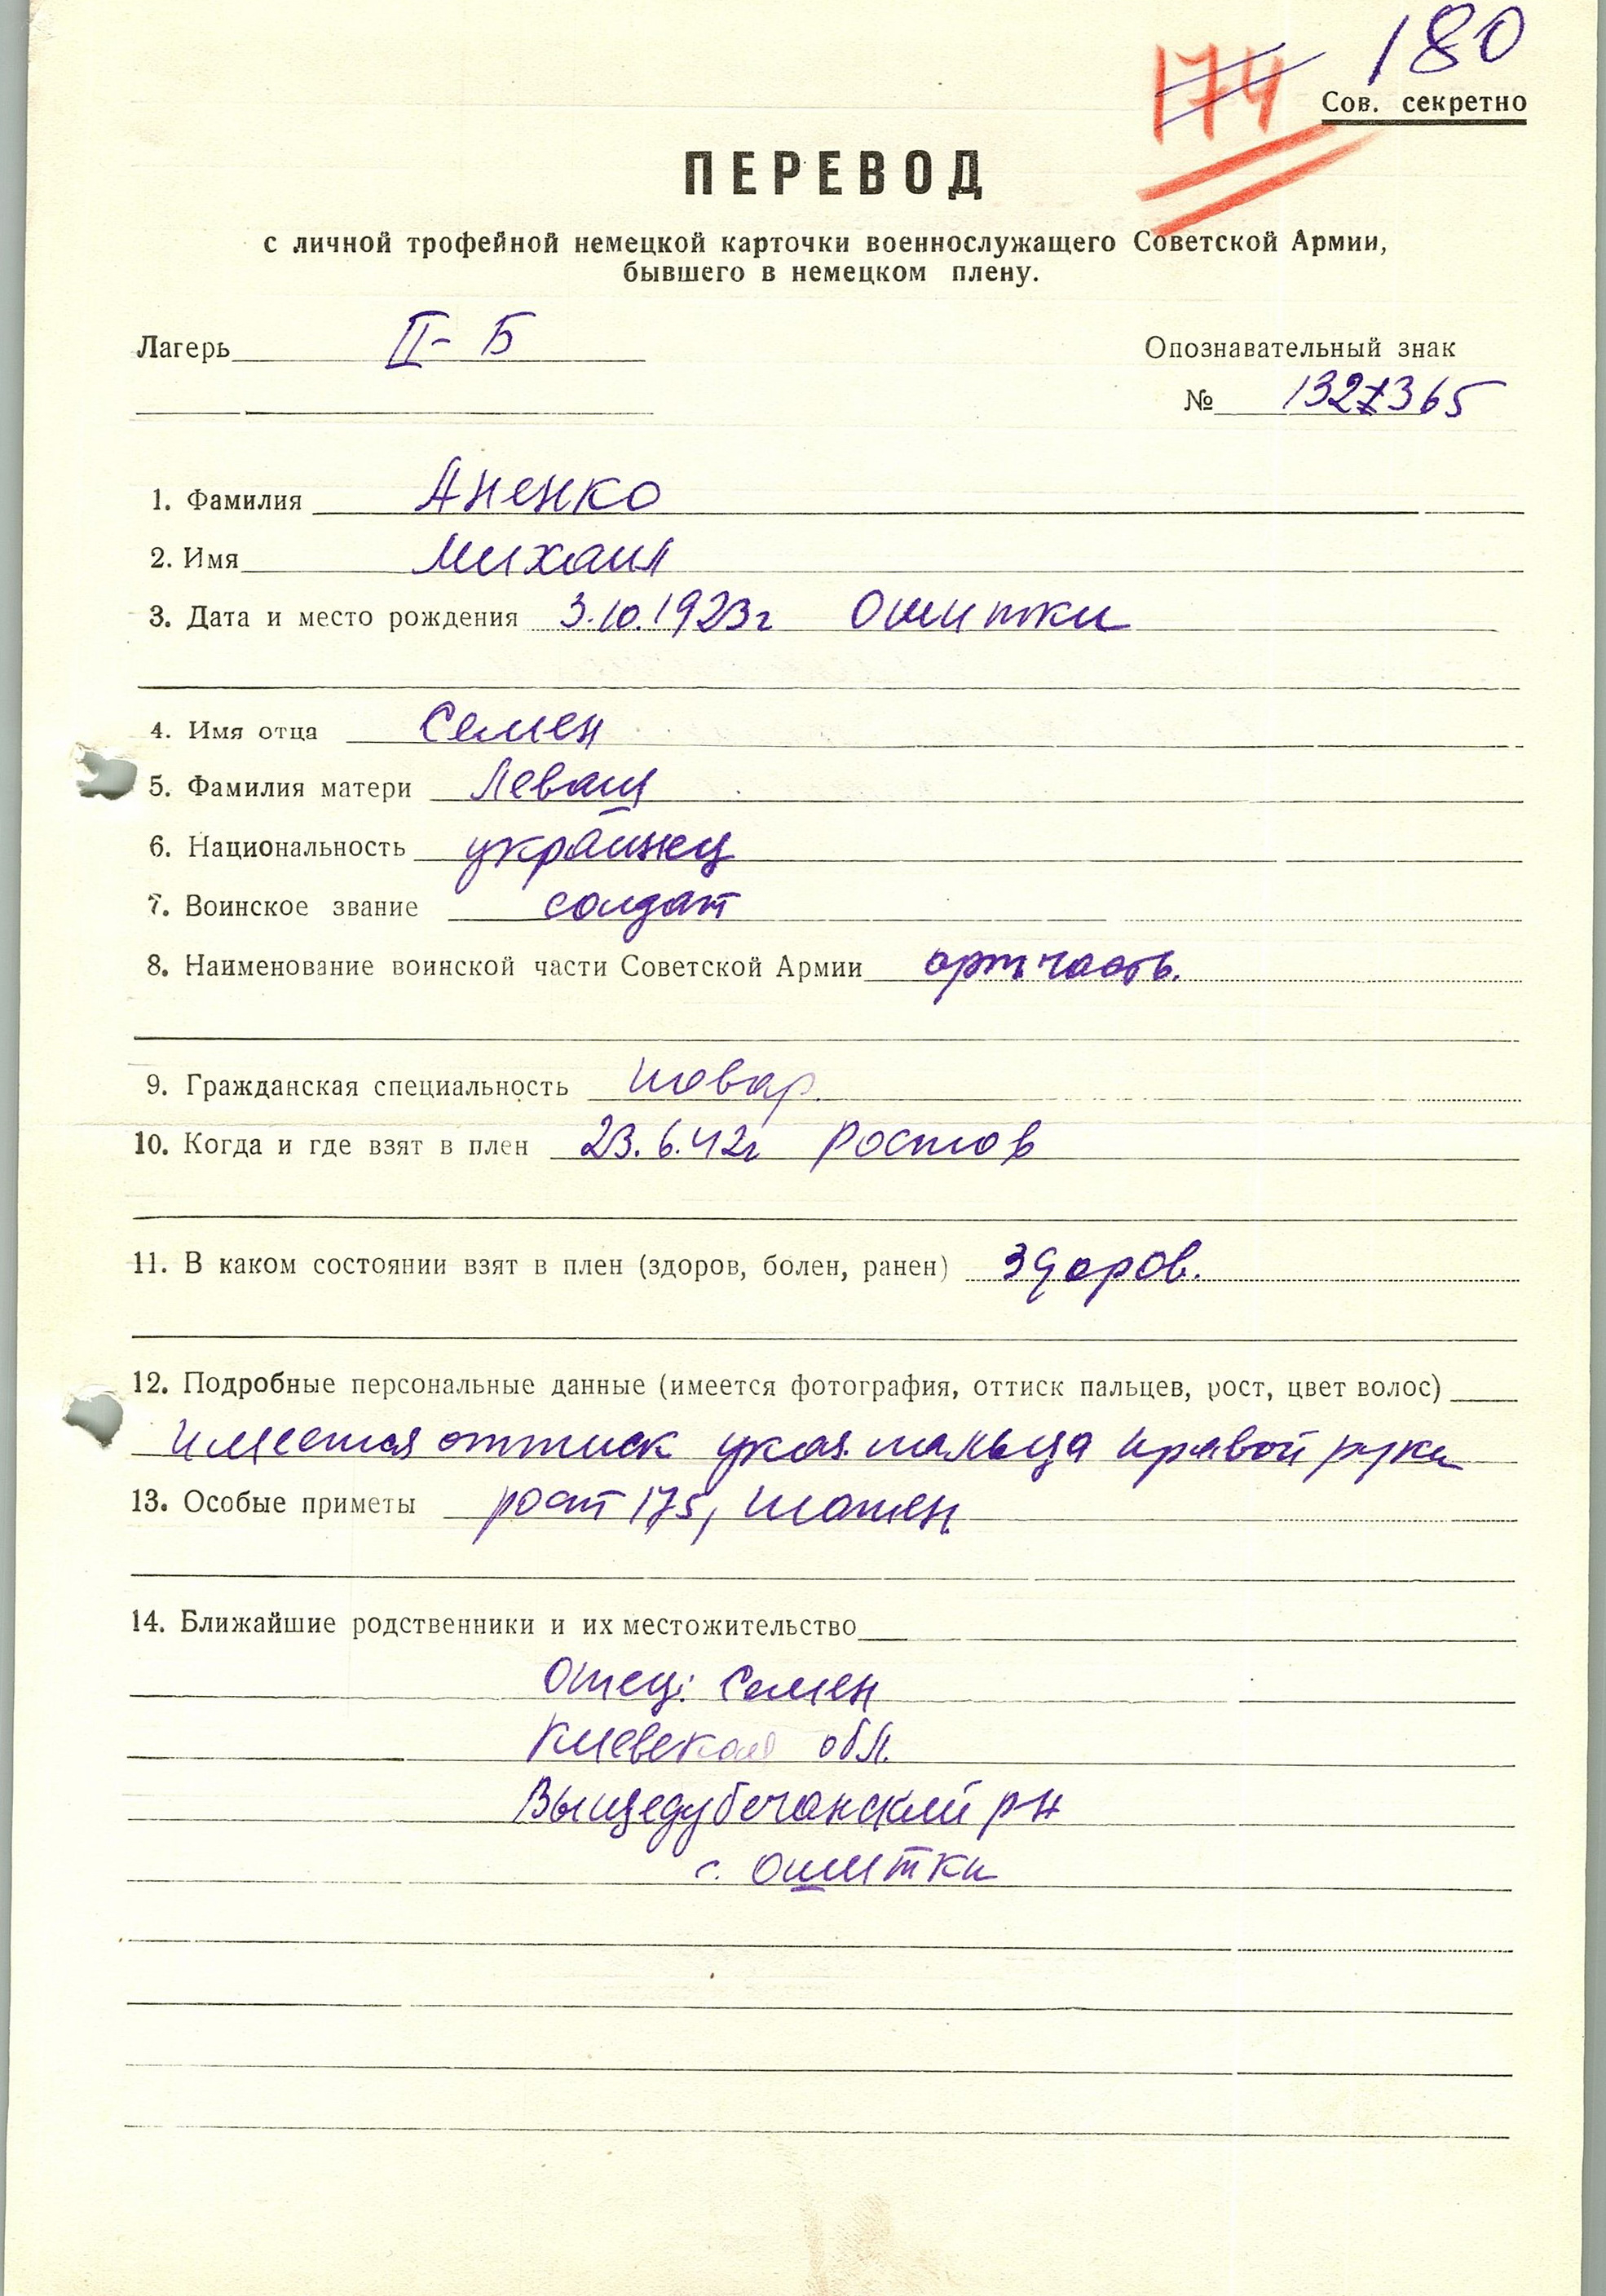 180
174
Сов. секретно
ПЕРЕВОД
с личной трофейной немецкой карточки военнослужащего Советской Армии,
бывшего в немецком плену.
Лагерь II-Б
Опознавательный знак
№ 1327365
1. Фамилия Аненко
2. Имя Михаил
3. Дата и место рождения 3.10.1923г Ошитки
4. Имя отца Семен
5. Фамилия матери Леващ
6. Национальность украинец
7. Воинское звание солдат
8. Наименование воинской части Советской Армии арт. часть.
9. Гражданская специальность повар.
10. Когда и где взят в плен 23.6.42г Ростов
11. В каком состоянии взят в плен (здоров, болен, ранен) здоров.
12. Подробные персональные данные (имеется фотография, оттиск пальцев, рост, цвет волос)
имеется оттиск указ. пальца правой руки
13. Особые приметы рост 175,
14. Ближайшие родственники и их местожительство
Отец: Семен
Киевская обл.
Вышедубечанский р-н
с. Ошитки